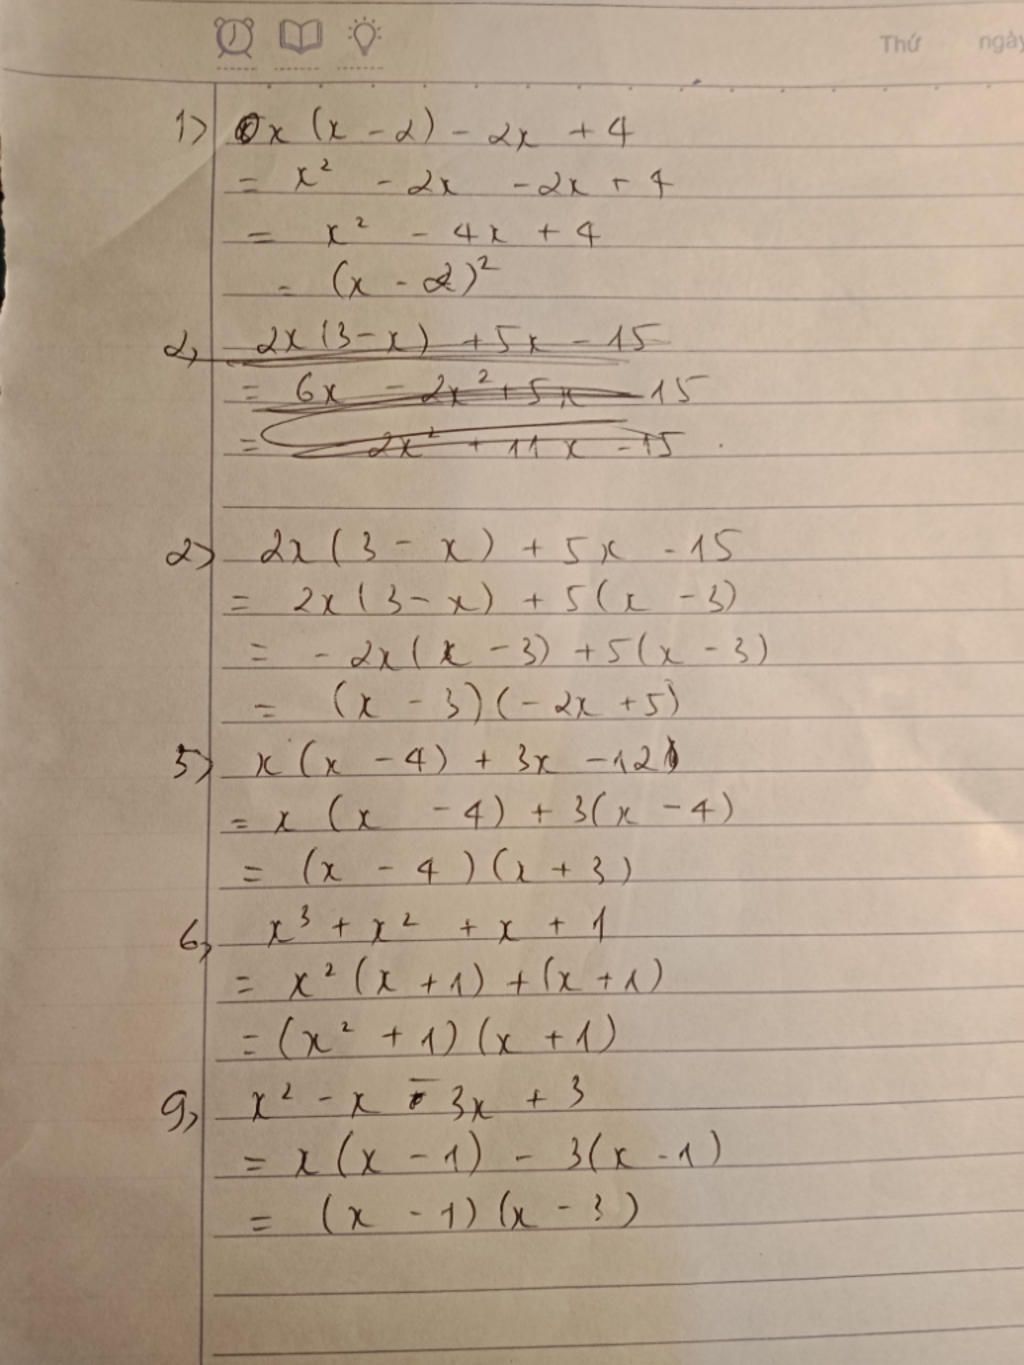 Thứ ngày
1) x (x - 2) - 2x + 4
= x² - 2x - 2x + 4
= x² - 4x + 4
= (x - 2)²
2, 2x (3 - x) + 5x - 15
= 6x - 2x² + 5x - 15
= 2x² + 11x - 15
2) 2x (3 - x) + 5x - 15
= 2x (3 - x) + 5(x - 3)
= - 2x (x - 3) + 5(x - 3)
= (x - 3)(- 2x + 5)
5) x (x - 4) + 3x - 12
= x (x - 4) + 3(x - 4)
= (x - 4)(x + 3)
6, x³ + x² + x + 1
= x² (x + 1) + (x + 1)
= (x² + 1)(x + 1)
9, x² - x - 3x + 3
= x (x - 1) - 3(x - 1)
= (x - 1)(x - 3)